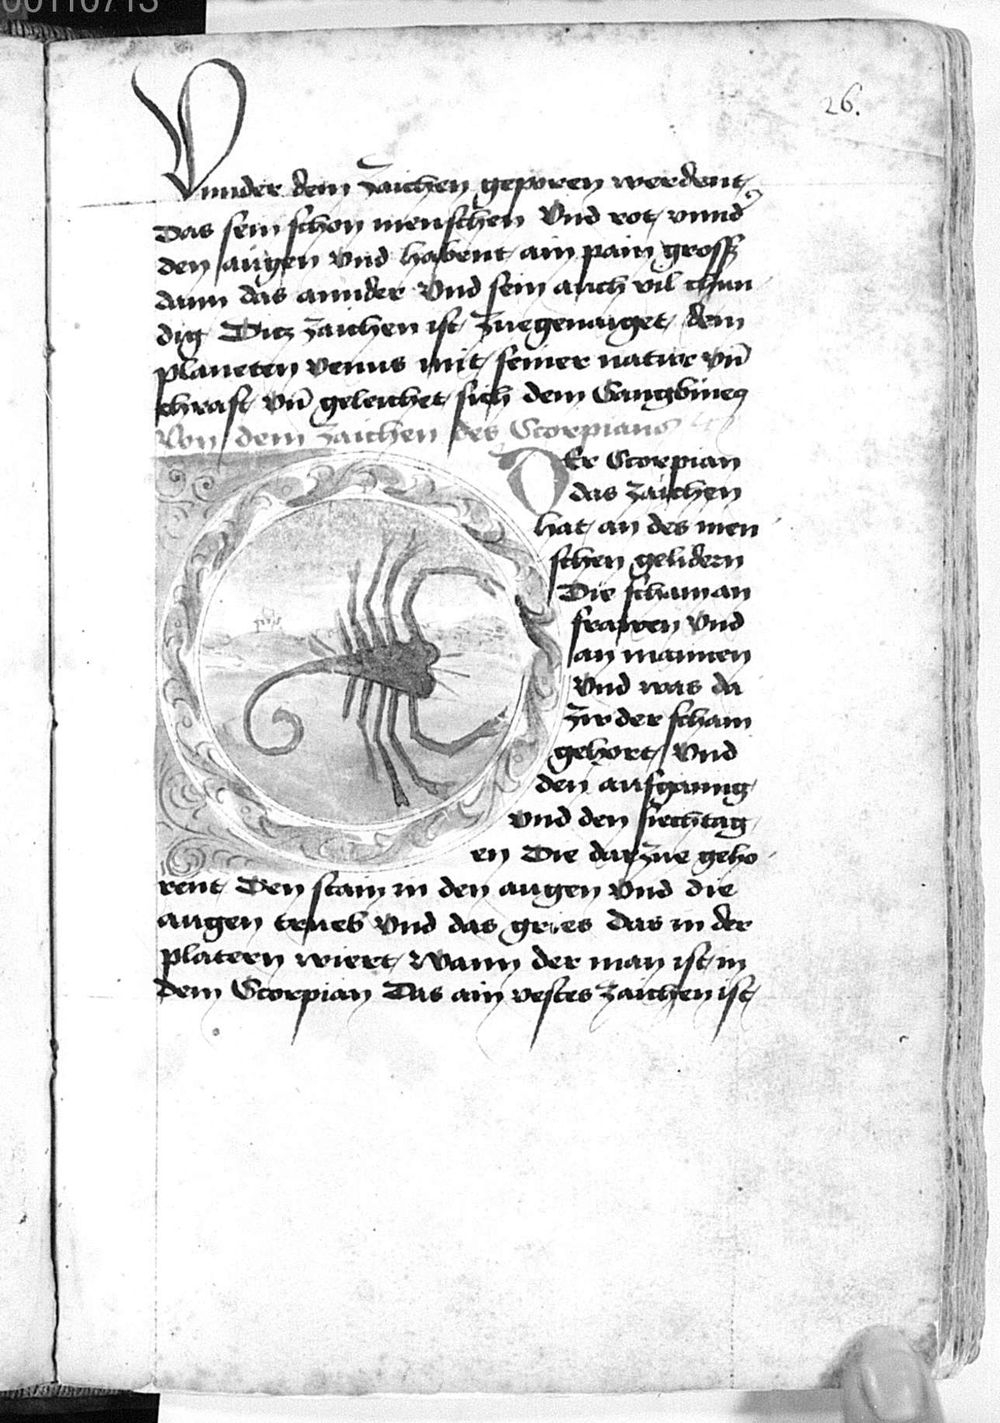 00110713
26.
Vnnder dem zaichen geporen werdent
Das sein schon menschen Vnd rot vnnd
den augen Vnd habent ain pain gross
dann das annder Vnd sein auch vil chun
dig Ditz zaichen ist zuegenaiget dem
planeten venus mit seiner natur vn̄
chraft vn̄ geleichet sich dem
Von dem zaichen des Scorpians
DEr Scorpian
das zaichen
hat an des men
schen gelidern
Die scham an
frawen Vnd
an mannen
Vnd was da
zw der scham
gehort Vnd
den aufganng
vnd den siechtag
en Die darzue geho
rent Den stain in den augen Vnd die
augen trueb Vnd das gries das in der
platern wiert Wann der man ist in
dem Scorpian Das ain vestes zaichen ist